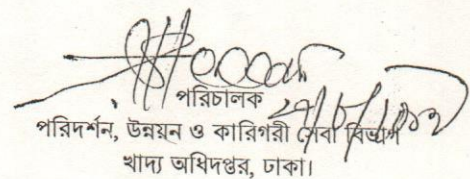 পরিচালক
পরিদর্শন, উন্নয়ন ও কারিগরী সেবা বিভাগ
খাদ্য অধিদপ্তর, ঢাকা।